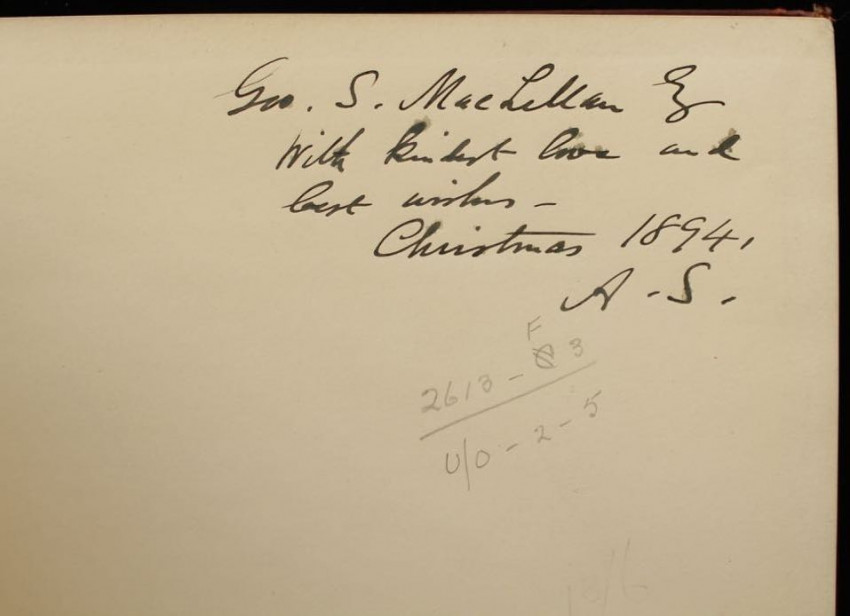 Geo. S. MacLellan Esq
With kindest love and
best wishes –
Christmas 1894,
A. S.
F
2613 – 3
U/O – 2 – 5